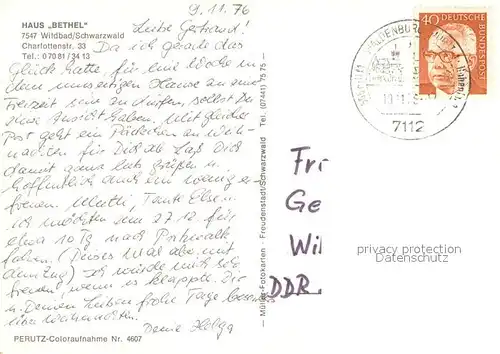 HAUS „BETHEL"
7547 Wildbad/Schwarzwald
Charlottenstr. 33
Tel.: 0 70 81 / 34 13
9.11.76
Liebe Gertraud!
Da ich gerade das
Glück hatte, für eine Woche in
dem umseitigen Hause an einer
Freizeit sein zu dürfen, sollst Du
eine Ansicht haben. Mit gleicher
Post geht ein Päckchen an Weih-
nachten für Dich ab. Laß Dich
damit ganz lieb grüßen u.
hoffentlich auch ein wenig er-
freuen. Mutti, Tante Else u.
ich möchten am 27.12 für
etwa 10 Tg nach
fahren. (Dieses Mal aber mit
dem Zug) Ich würde mich sehr
freuen, wenn es klappte. Dir
u. Deinen Lieben frohe Tage
Deine Helga
PERUTZ-Coloraufnahme Nr. 4607
Müller-Fotokarten · Freudenstadt/Schwarzwald · Tel. (07441) 75 75
WALDENBURG
7112
40
DEUTSCHE
BUNDESPOST
Fr
Ge
Wi
DDR
privacy protection
Datenschutz